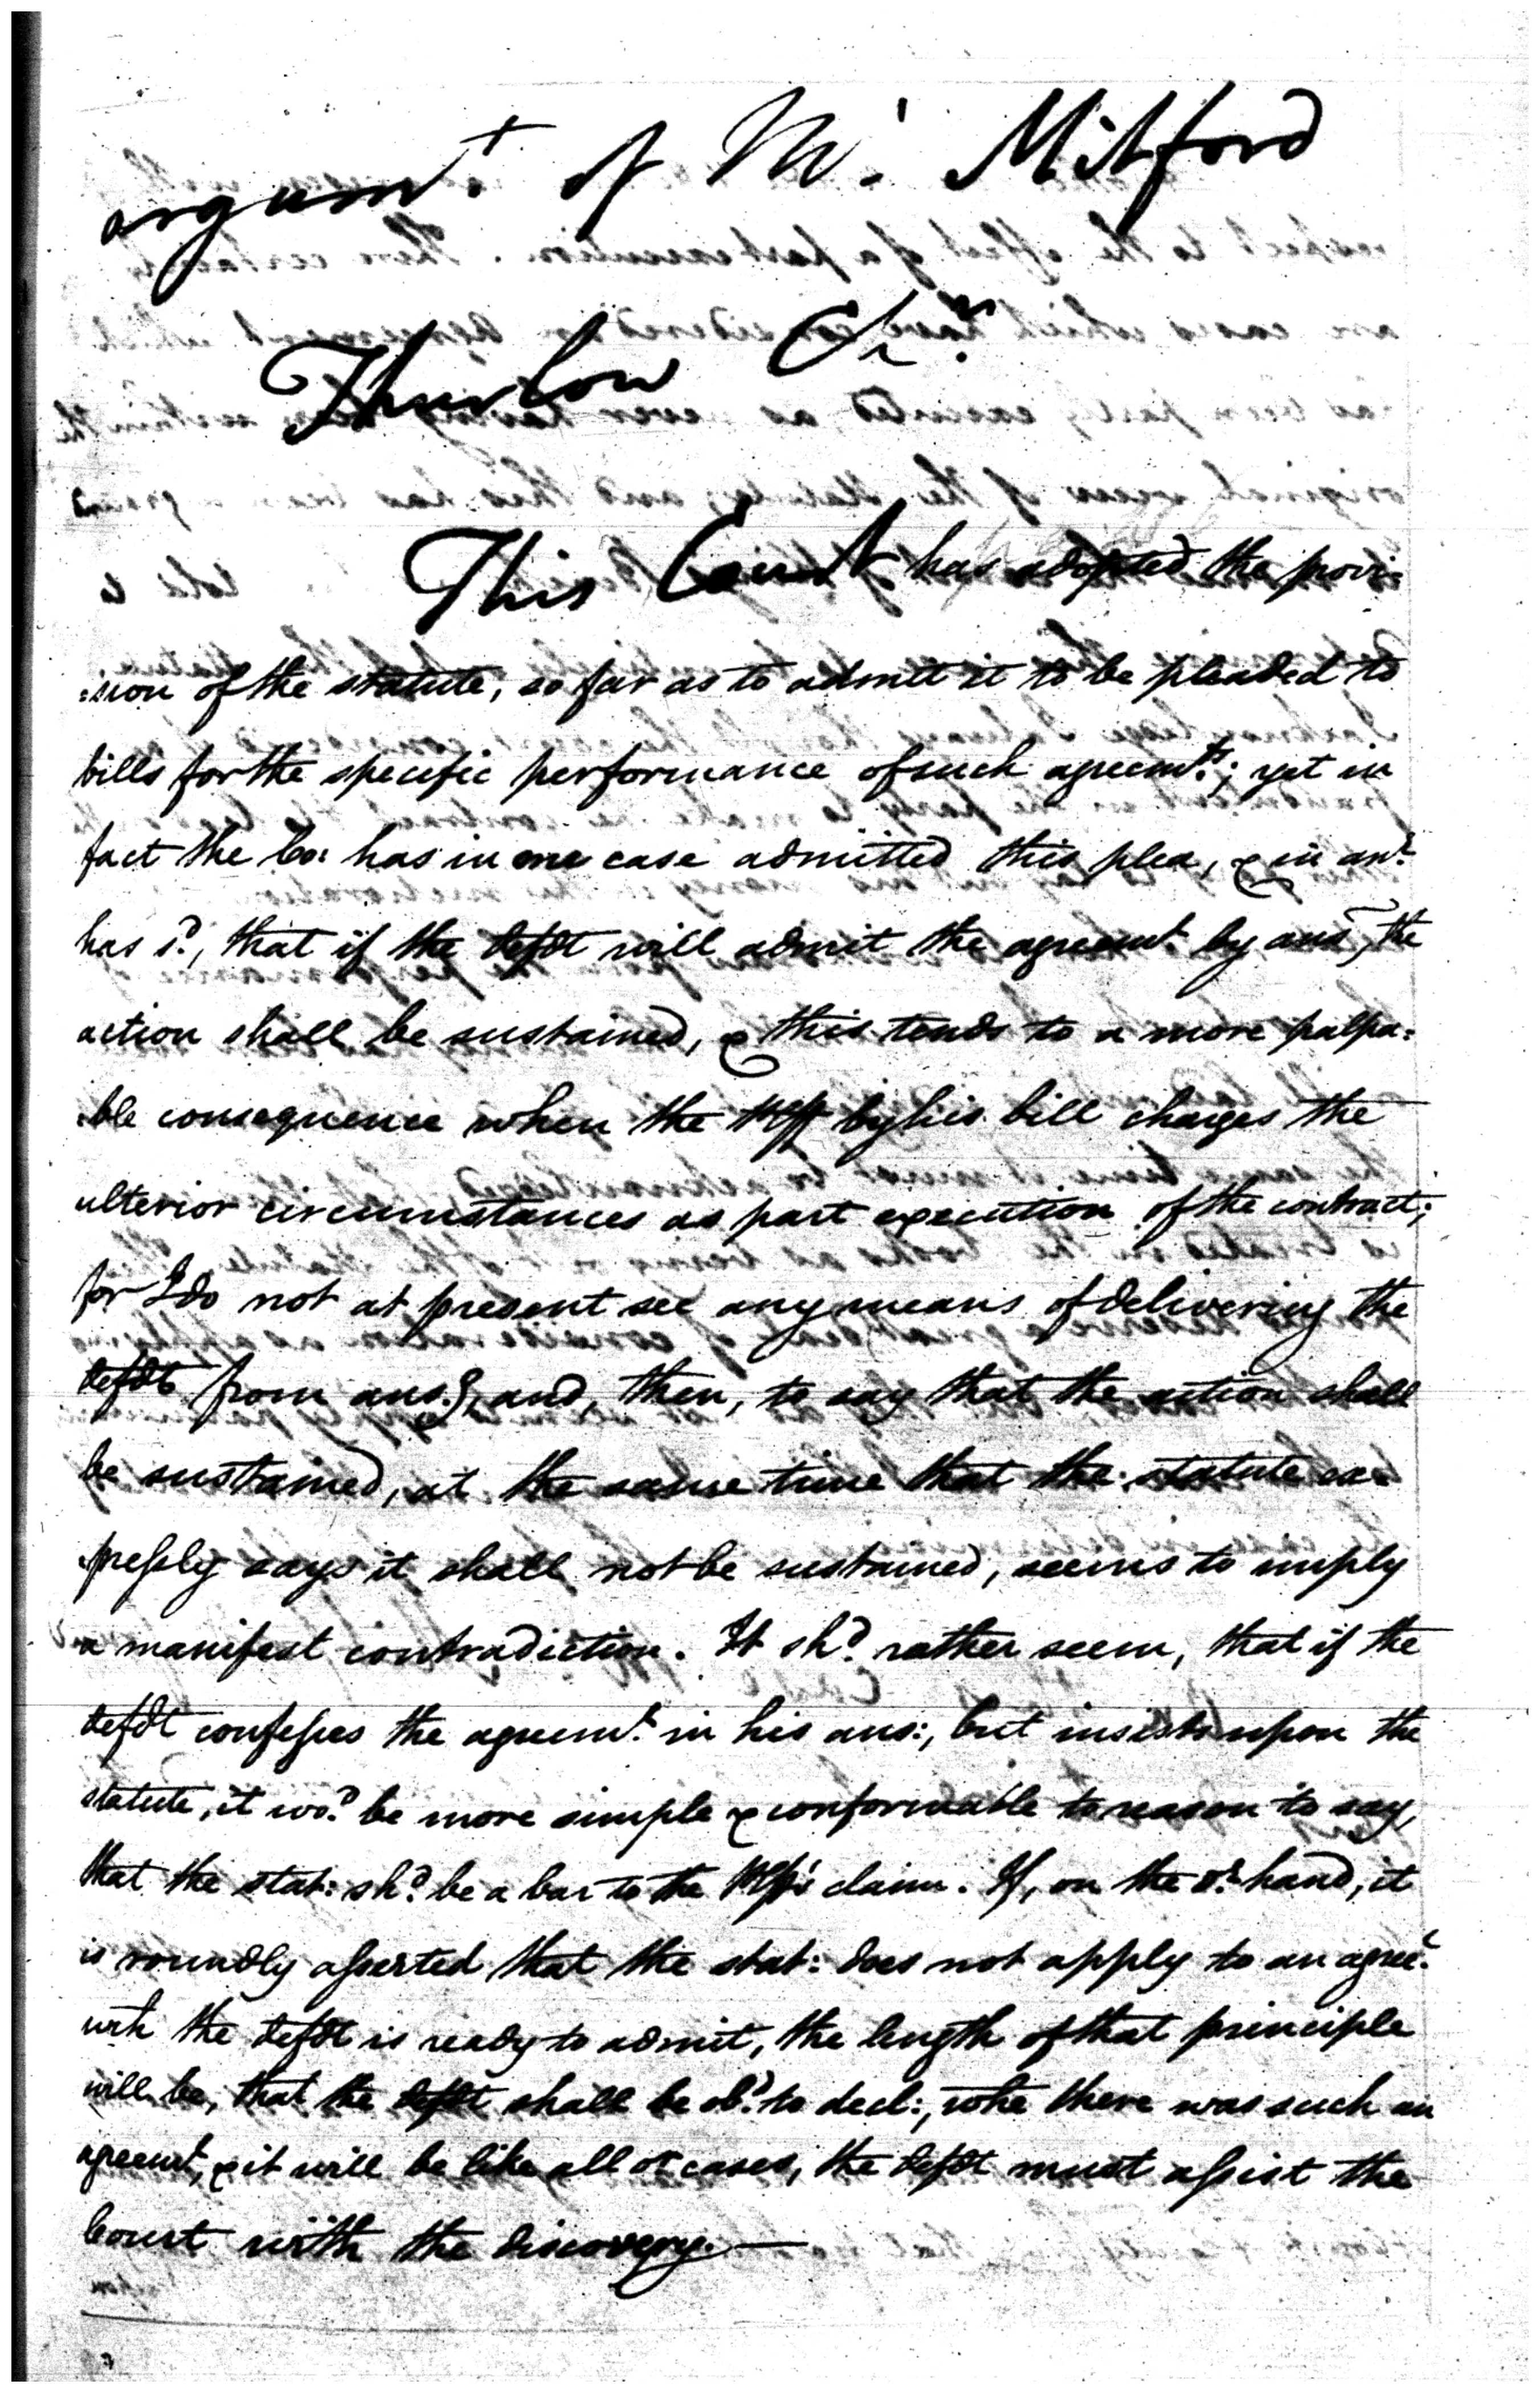 argum.t of M.r Mitford
Thurlow Ch.r
This Court has adopted the provi=
=sion of the statute, so far as to admit it to be pleaded to
bills for the specific performance of such agreem.ts; yet in
fact the Co: has in one case admitted this plea, & in an.r
has s.d, that if the defdt will admit the agreemt by ans, the
action shall be sustained, & this tends to a more palpa=
ble consequence when the plff by his bill charges the
ulterior circumstances as part execution of the contract;
for I do not at present see any means of delivering the
defdt from ans.g, and, then, to say that the action shall
be sustained, at the same time that the statute ex=
pressly says it shall not be sustained, seems to imply
a manifest contradiction. It sh.d rather seem, that if the
defdt confesses the agreem.t in his ans:, but insists upon the
statute, it wo.d be more simple & conformable to reason to say,
that the stat: sh.d be a bar to the plff's claim. If, on the o.r hand, it
is roundly asserted that the stat: does not apply to an agree.t
wch the defdt is ready to admit, the length of that principle
will be, that the defdt shall be ob.d to decl:, whr there was such an
agreemt, & it will be like all or cases, the defdt must assist the
Court with the discovery.—